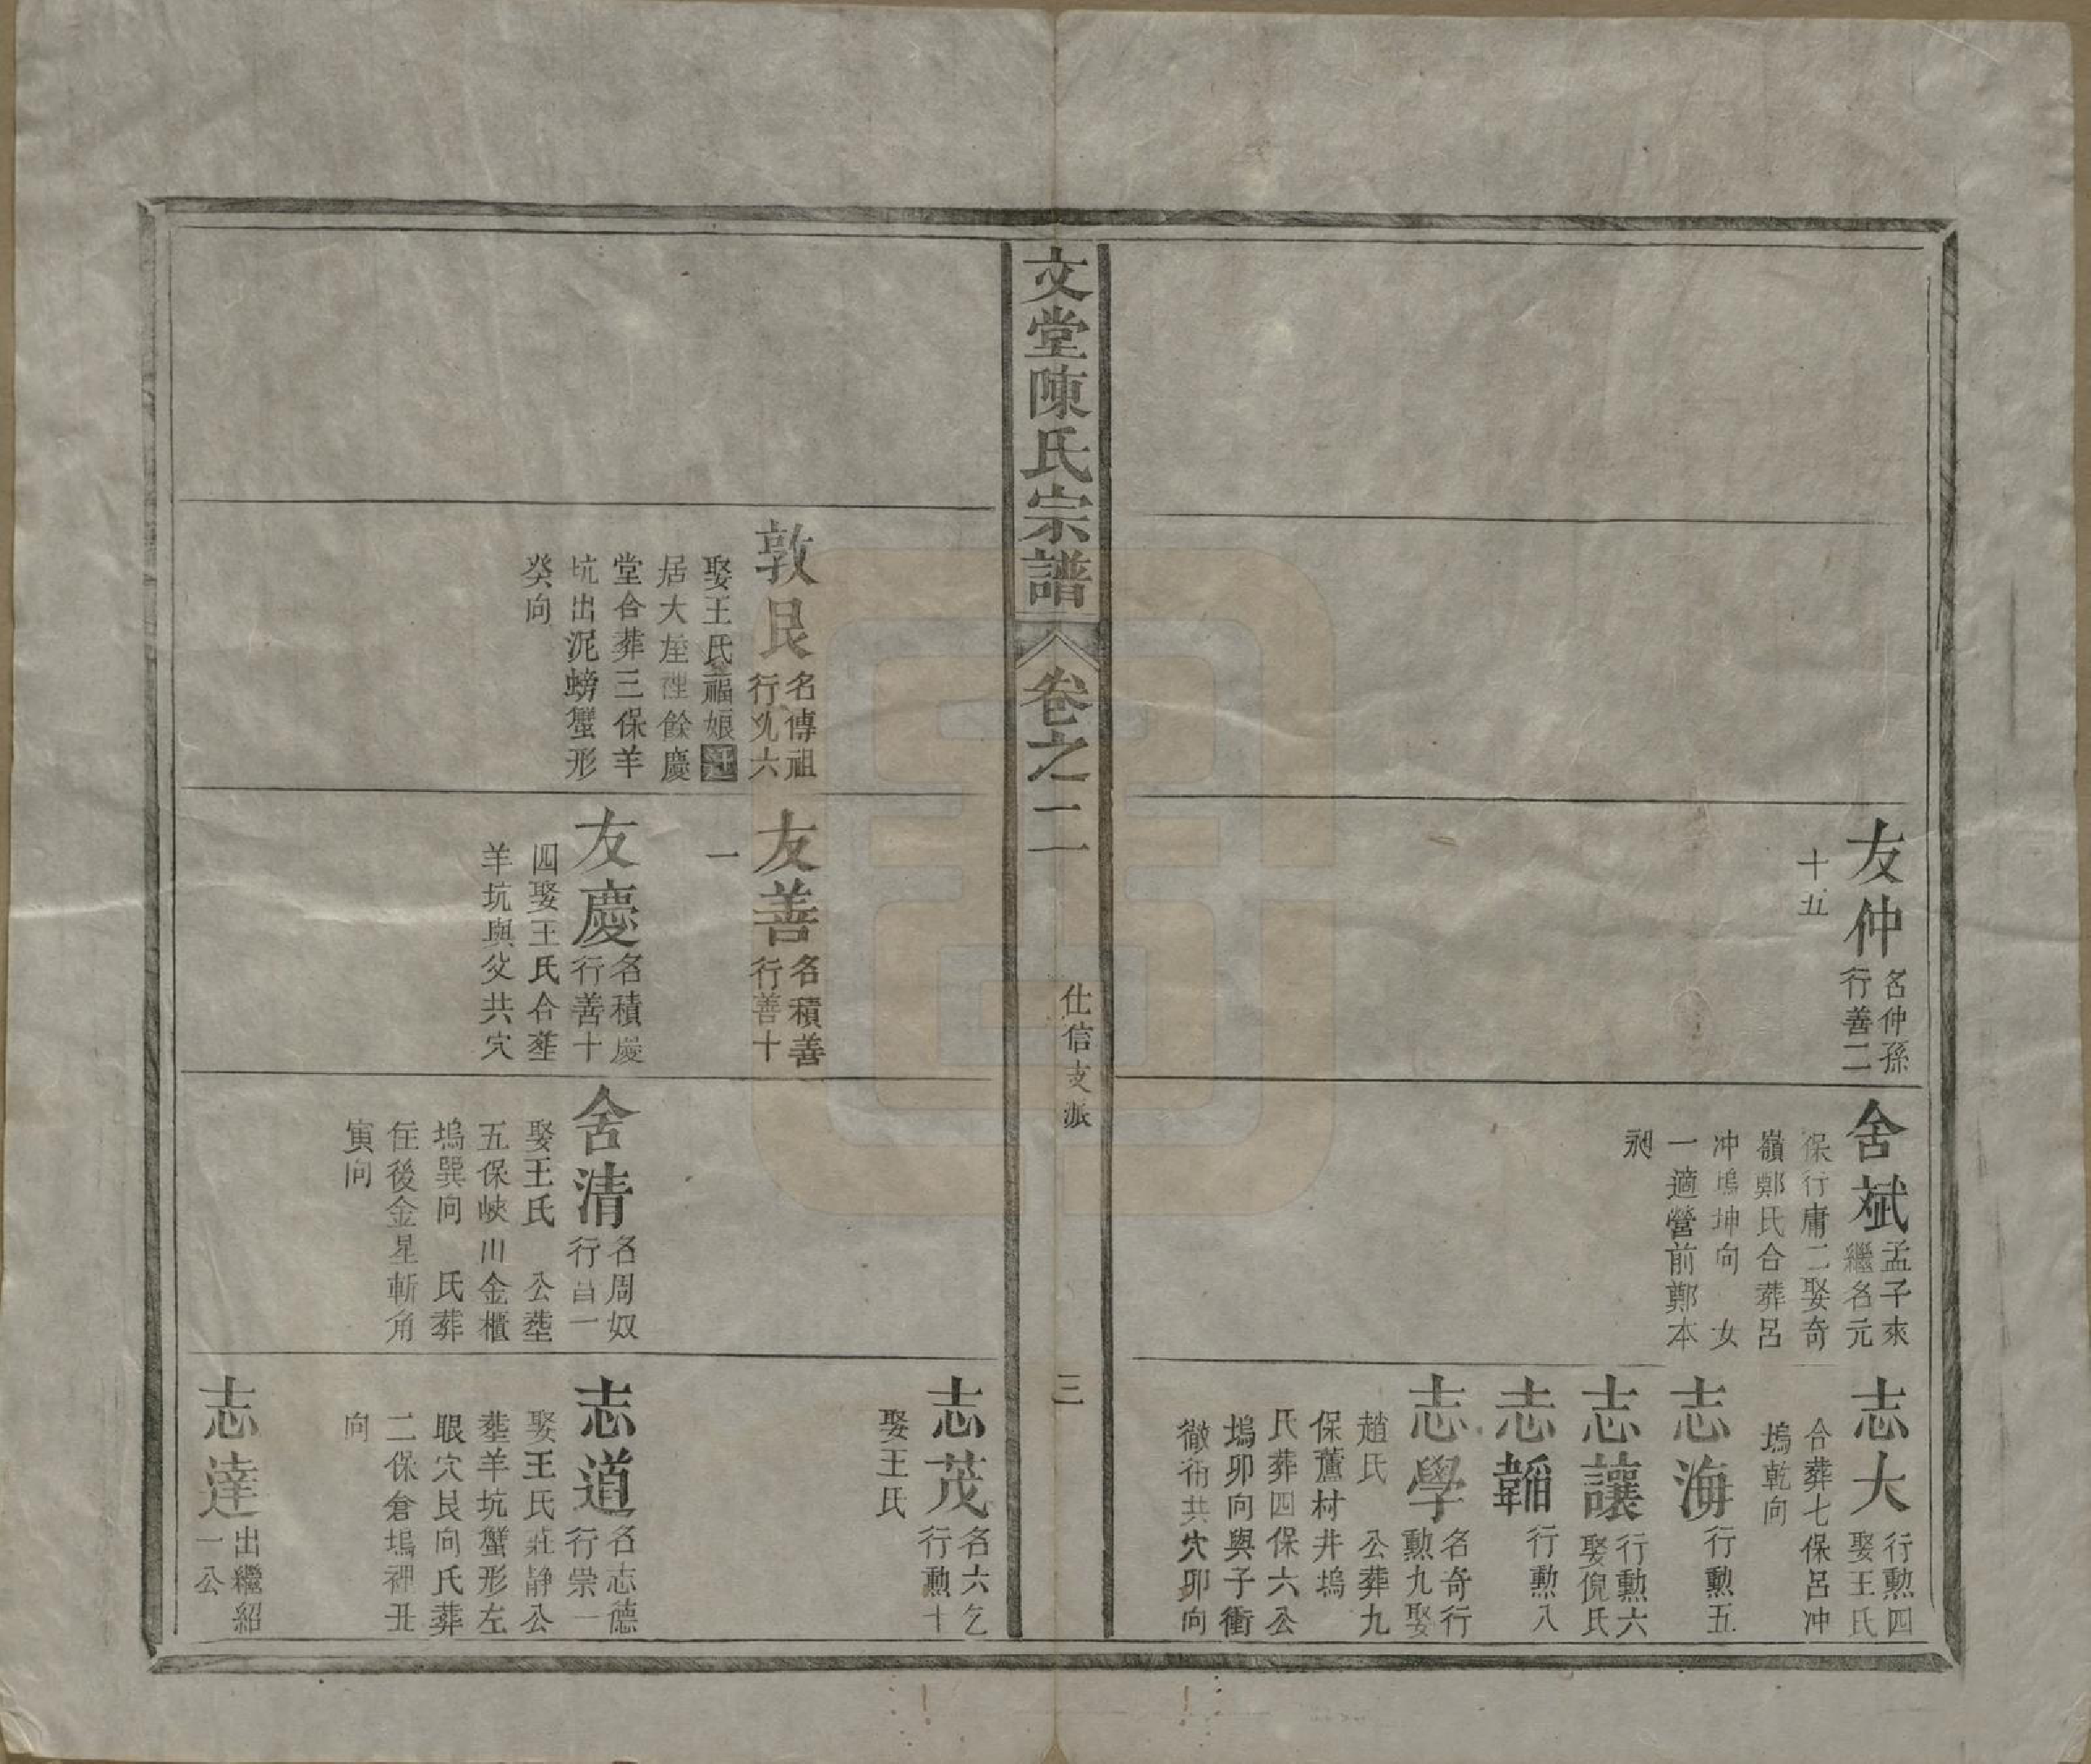 友仲
名仲孫
行善二
十五
舍斌
孟子來
繼名元
保行庸二娶奇
嶺鄭氏合葬呂
冲塢坤向 女
一適營前鄭本
志大
行勲四
娶王氏
合葬七保呂冲
塢乾向
志海
行勲五
志讓
行勲六
娶倪氏
志韜
行勲八
志學
名奇行
勲九娶
趙氏 公葬九
保蘆村井塢
氏葬四保六公
塢卯向與子衝
徹術共穴卯向
文堂陳氏宗譜
卷之二
仕信支派
三
敦艮
名傳祖
行九六
娶王氏福娘
居大㘴裡餘慶
堂合葬三保羊
坑出泥螃蟹形
癸向
友善
名積善
行善十
一
友慶
名積慶
行善十
四娶王氏合塟
羊坑與父共穴
舍清
名周奴
行昌一
娶王氏 公塟
五保峽川金櫃
塢巽向 氏葬
住後金星斬角
寅向
志茂
名六乞
行勲十
娶王氏
志道
名志德
行崇一
娶王氏莊静公
塟羊坑蟹形左
眼穴艮向氏葬
二保倉塢裡丑
向
志達
出繼紹
一公